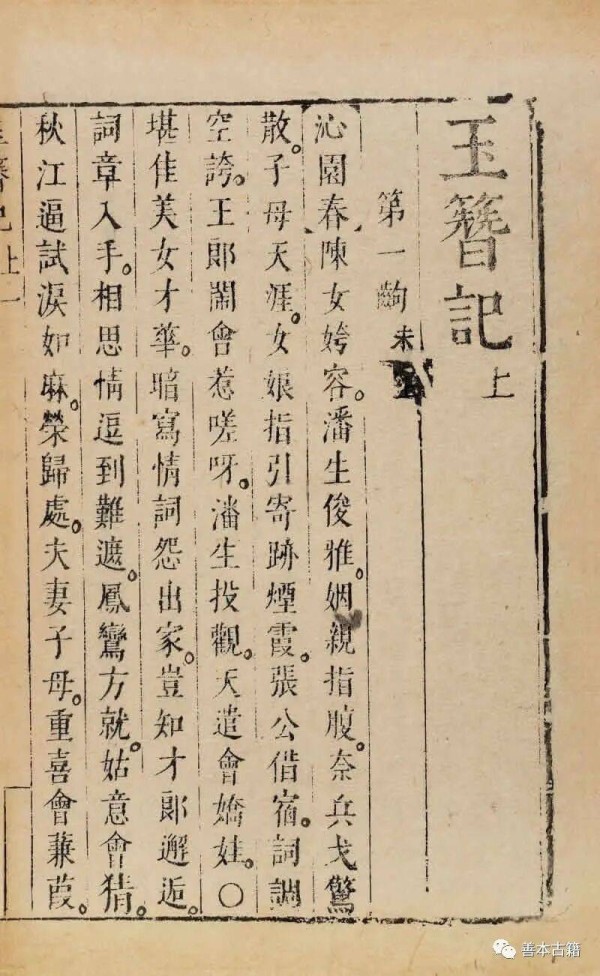 玉簪記 上
第一齣 未
【沁園春】陳女姱容。潘生俊雅。姻親指腹。奈兵戈驚
散。子母天涯。女娘指引寄跡煙霞。張公借宿。詞調
空誇。王郎鬧會惹嗟呀。潘生投觀。天遣會嬌娃。○
堪佳美女才華。暗寫情詞怨出家。豈知才郎邂逅。
詞章入手。相思情逗到難遮。鳳鸞方就。姑意會猜。
秋江逼試淚如麻。榮歸處。夫妻子母。重喜會蒹葭。
簪記上一
善本古籍